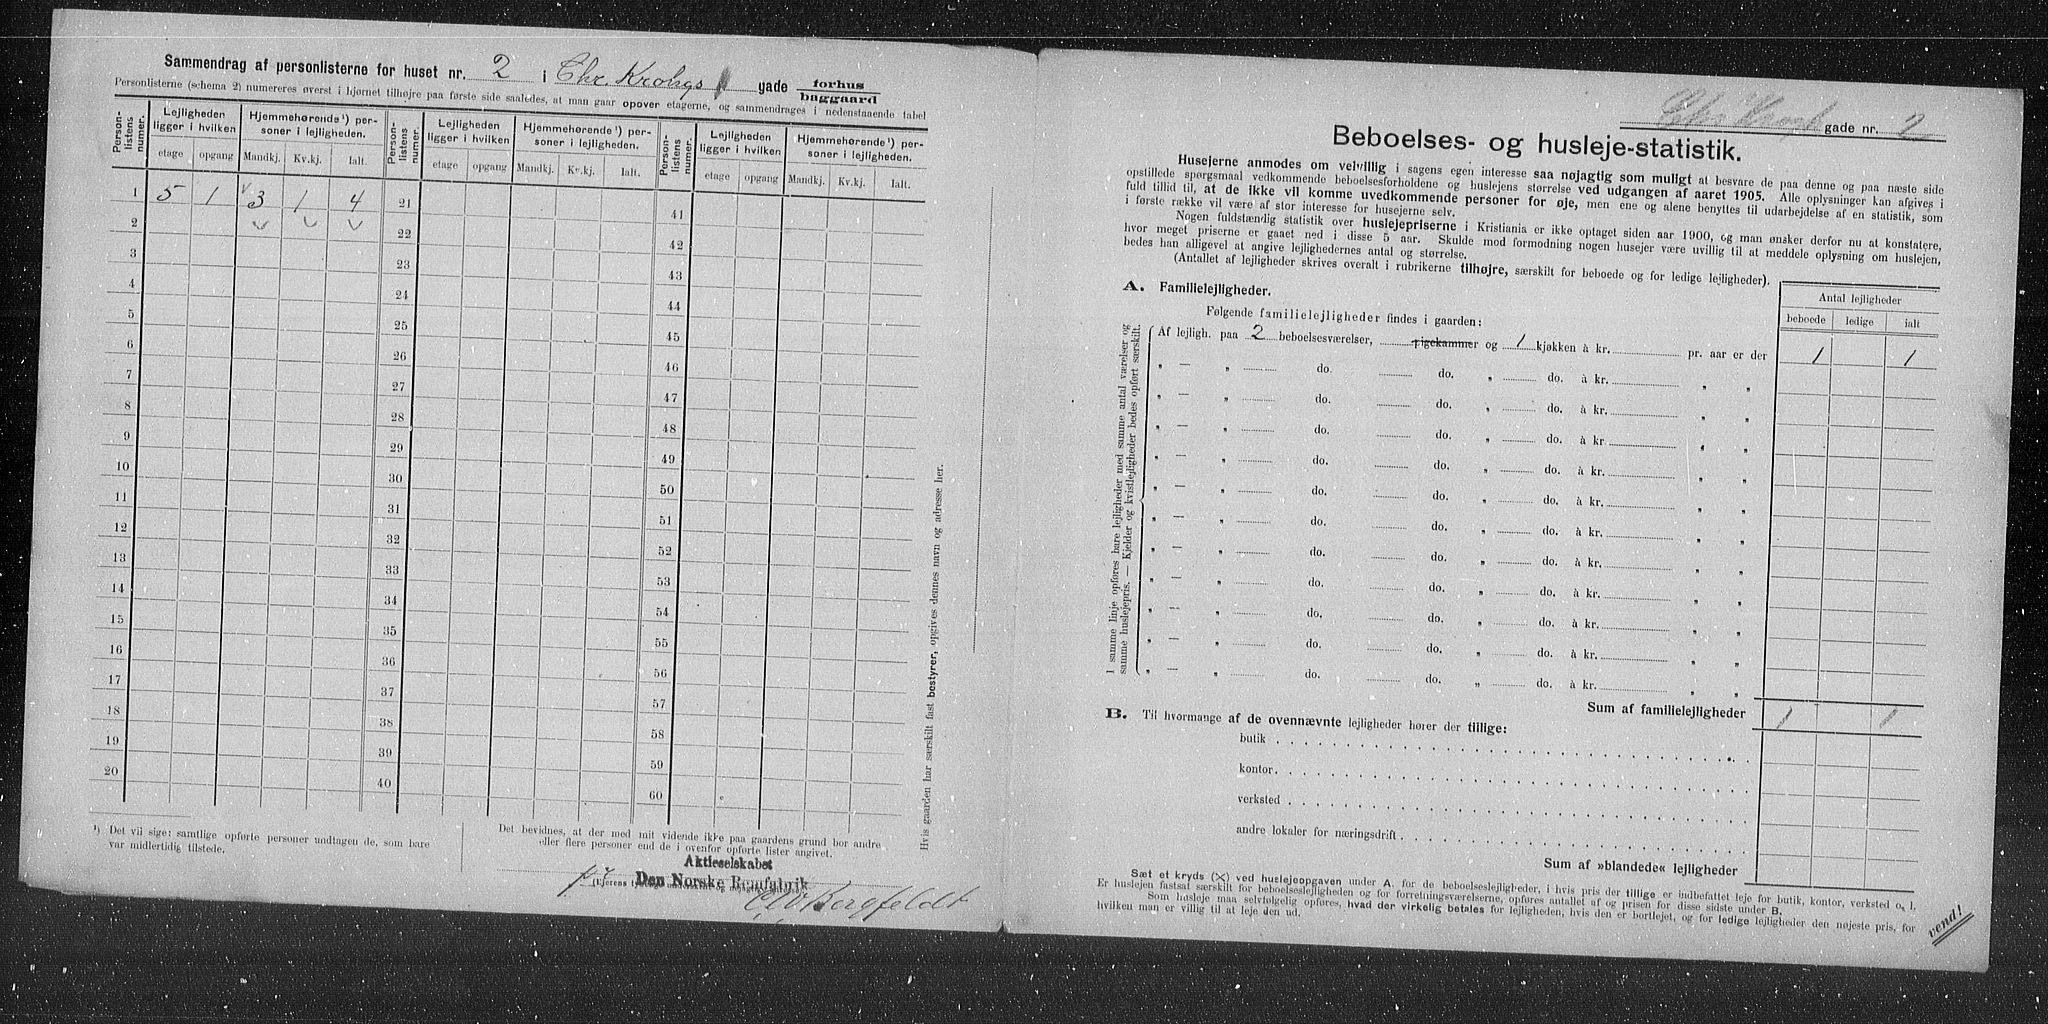 Sammendrag af personlisterne for huset nr. 2 i Chr. Krohgs gade forhus
baggaard
Personlisterne (schema 2) numereres øverst i hjørnet tilhøjre paa første side saaledes, at man gaar opover etagerne, og sammendrages i nedenstaaende tabel
Person-listens numer. Lejligheden ligger i hvilken Hjemmehørende¹) personer i lejligheden. Person-listens numer. Lejligheden ligger i hvilken Hjemmehørende¹) personer i lejligheden. Person-listens numer. Lejligheden ligger i hvilken Hjemmehørende¹) personer i lejligheden.
etage opgang Mandkj. Kv.kj. Ialt. etage opgang Mandkj. Kv.kj. Ialt. etage opgang Mandkj. Kv.kj. Ialt.
1 5 1 3 1 4 21 41
2 22 42
3 23 43
4 24 44
5 25 45
6 26 46
7 27 47
8 28 48
9 29 49
10 30 50
11 31 51
12 32 52
13 33 53
14 34 54
15 35 55
16 36 56
17 37 57
18 38 58
19 39 59
20 40 60
¹) Det vil sige: samtlige opførte personer undtagen de, som bare
var midlertidig tilstede.
Det bevidnes, at der med mit vidende ikke paa gaardens grund bor andre
eller flere personer end de i ovenfor opførte lister angivet.
Aktieselskabet
Den Norske Remfabrik
Bergfeldt
Hvis gaarden har særskilt fast bestyrer, opgives dennes navn og adresse her.
Chr Krogh gade nr. 2
Beboelses- og husleje-statistik.
Husejerne anmodes om velvillig i sagens egen interesse saa nøjagtig som muligt at besvare de paa denne og paa næste side
opstillede spørgsmaal vedkommende beboelsesforholdene og huslejens størrelse ved udgangen af aaret 1905. Alle oplysninger kan afgives i
fuld tillid til, at de ikke vil komme uvedkommende personer for øje, men ene og alene benyttes til udarbejdelse af en statistik, som
i første række vil være af stor interesse for husejerne selv.
Nogen fuldstændig statistik over huslejepriserne i Kristiania er ikke optaget siden aar 1900, og man ønsker derfor nu at konstatere,
hvor meget priserne er gaaet ned i disse 5 aar. Skulde mod formodning nogen husejer være uvillig til at meddele oplysning om huslejen,
bedes han alligevel at angive lejlighedernes antal og størrelse.
(Antallet af lejligheder skrives overalt i rubrikerne tilhøjre, særskilt for beboede og for ledige lejligheder).
A. Familielejligheder.
Antal lejligheder
Følgende familielejligheder findes i gaarden:
beboede ledige ialt
Af lejligh. paa 2 beboelsesværelser, pigekammer og 1 kjøkken à kr. pr. aar er der 1 1
„ — „ do. do. „ do. à kr. „ „
„ — „ do. do. „ do. à kr. „ „
„ — „ do. do. „ do. à kr. „ „
„ — „ do. do. „ do. à kr. „ „
„ — „ do. do. „ do. à kr. „ „
„ — „ do. do. „ do. à kr. „ „
„ — „ do. do. „ do. à kr. „ „
„ — „ do. do. „ do. à kr. „ „
„ — „ do. do. „ do. à kr. „ „
„ — „ do. do. „ do. à kr. „ „
„ — „ do. do. „ do. à kr. „ „
I samme linje opføres bare lejligheder med samme antal værelser og
samme huslejepris. — Kjelder og kvistlejligheder bedes opført særskilt.
Sum af familielejligheder 1 1
B. Til hvormange af de ovennævnte lejligheder hører der tillige:
butik
kontor
verksted
andre lokaler for næringsdrift
Sum af »blandede« lejligheder
Sæt et kryds (X) ved huslejeopgaven under A. for de beboelseslejligheder, i hvis pris der tillige er indbefattet leje for butik, kontor, verksted o. l.
Er huslejen fastsat særskilt for beboelseslejligheden og for forretningsværelserne, opføres antallet af og prisen for disse sidste under B.
Som husleje maa selvfølgelig opføres, hvad der virkelig betales for lejligheden, hvis den er bortlejet, og for ledige lejligheder den nøjeste pris, for
hvilken man er villig til at leje den ud.
vend!